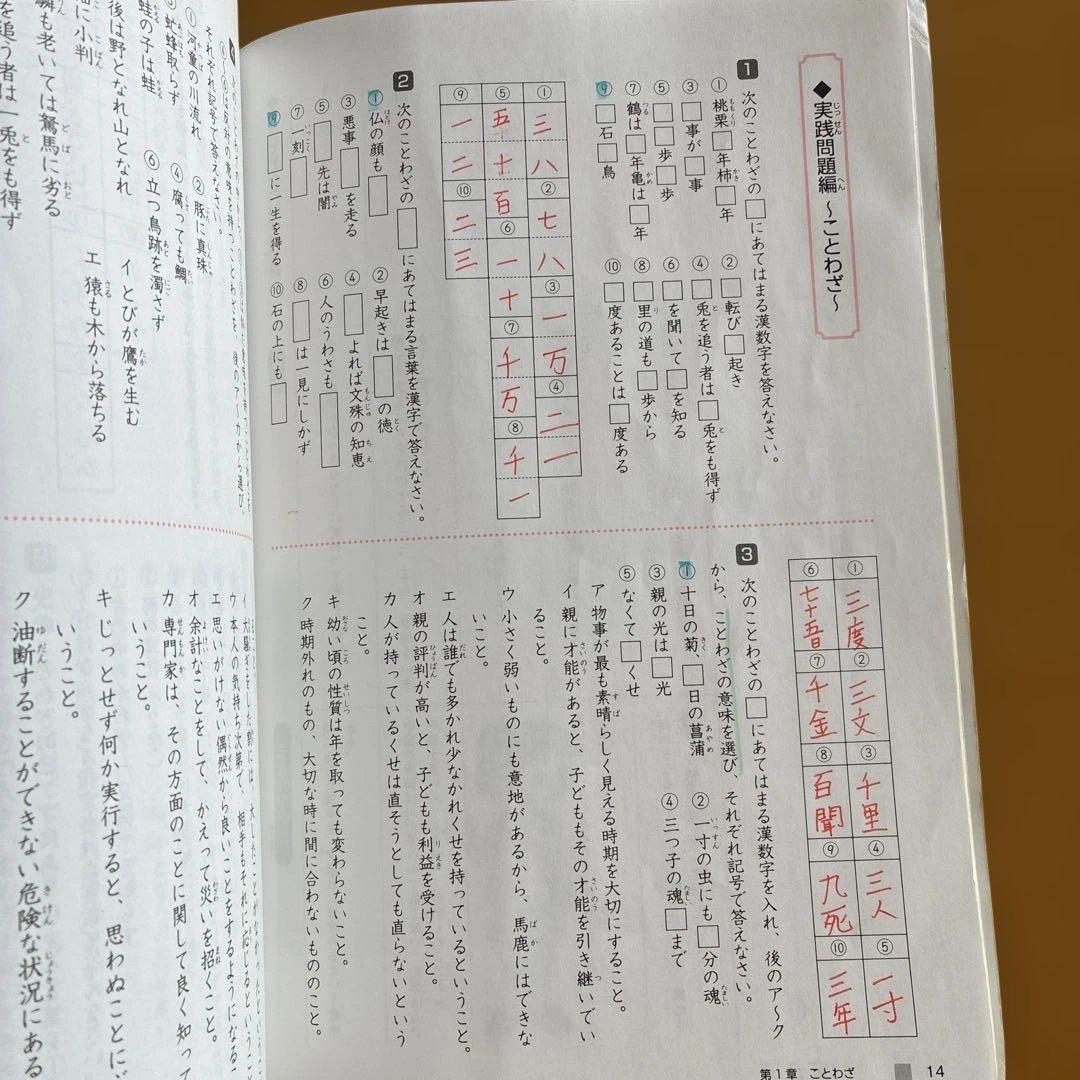 ◆実践問題編 〜ことわざ〜
1 次のことわざの□にあてはまる漢数字を答えなさい。
① 桃栗□年柿□年
② □転び□起き
③ □事が□事
④ □兎を追う者は□兎をも得ず
⑤ □歩□歩
⑥ □を聞いて□を知る
⑦ 鶴は□年亀は□年
⑧ □里の道も□歩から
⑨ □石□鳥
⑩ □度あることは□度ある
① 三 八 ② 七 八 ③ 一 万 ④ 二 一
⑤ 五十 百 ⑥ 一 十 ⑦ 千 万 ⑧ 千 一
⑨ 一 二 ⑩ 二 三
2 次のことわざの□にあてはまる言葉を漢字で答えなさい。
① 仏の顔も□
② 早起きは□の徳
③ 悪事□を走る
④ □よれば文殊の知恵
⑤ □先は闇
⑥ 人のうわさも□
⑦ 一刻□
⑧ □は一見にしかず
⑨ □に一生を得る
⑩ 石の上にも□
① 三度 ② 三文 ③ 千里 ④ 三人 ⑤ 一寸
⑥ 七十五日 ⑦ 千金 ⑧ 百聞 ⑨ 九死 ⑩ 三年
3 次のことわざの□にあてはまる漢数字を入れ、後のア〜ク
から、ことわざの意味を選び、それぞれ記号で答えなさい。
① 十日の菊、□日の菖蒲
② 一寸の虫にも□分の魂
③ 親の光は□光
④ 三つ子の魂□まで
⑤ なくて□くせ
ア 物事が最も素晴らしく見える時期を大切にすること。
イ 親に才能があると、子どももその才能を引き継いでい
ること。
ウ 小さく弱いものにも意地があるから、馬鹿にはできな
いこと。
エ 人は誰でも多かれ少なかれくせを持っているということ。
オ 親の評判が高いと、子どもも利益を受けること。
カ 人が持っているくせは直そうとしても直らないという
こと。
キ 幼い頃の性質は年を取っても変わらないこと。
ク 時期外れのもの、大切な時に間に合わないもののこと。
第1章 ことわざ 14
それぞれ記号で答えなさい。
① 河童の川流れ
② 豚に真珠
③ 虻蜂取らず
④ 腐っても鯛
蛙の子は蛙
⑥ 立つ鳥跡を濁さず
後は野となれ山となれ
イ とびが鷹を生む
に小判
エ 猿も木から落ちる
も老いては駑馬に劣る
を追う者は一兎をも得ず
ウ 本人の気持ち次第で、相手もそれに応じるという
エ 思いがけない偶然から良いことをするようになる
オ 余計なことをして、かえって災いを招くこと。
カ 専門家は、その方面のことに関して良く知って
いうこと。
キ じっとせず何か実行すると、思わぬことに
いうこと。
ク 油断することができない危険な状況にある